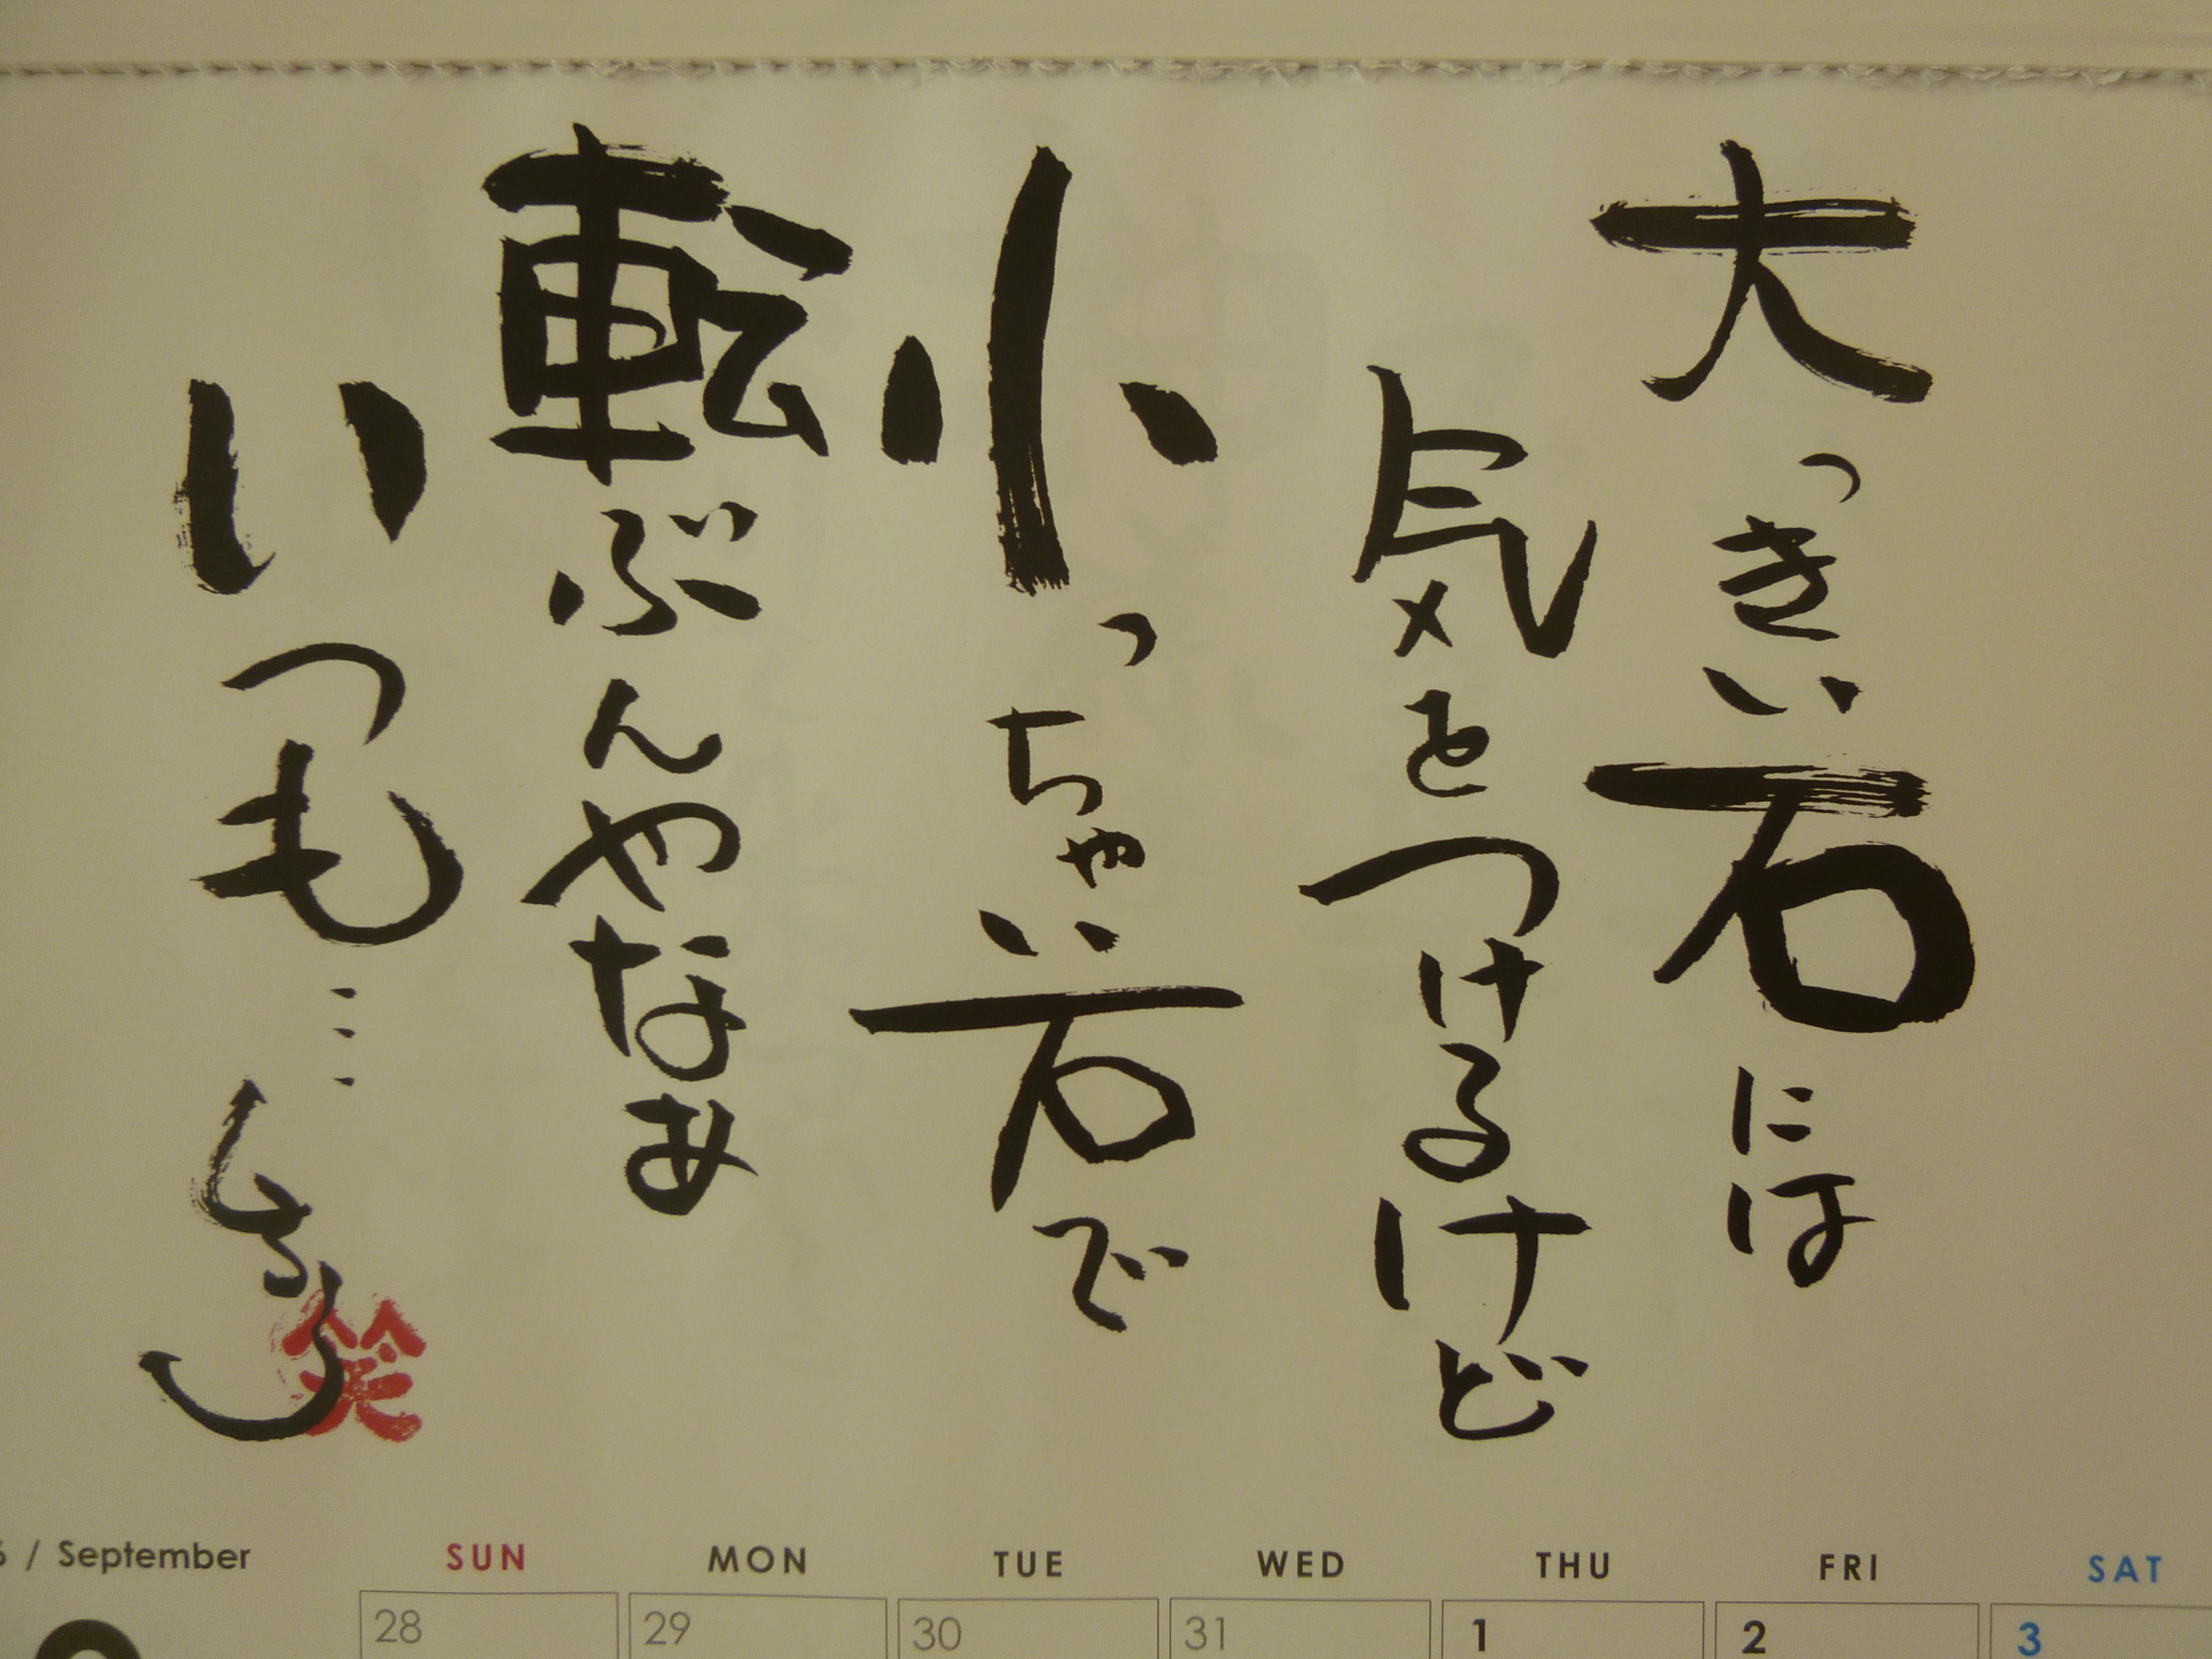 大っきい石には
気をつけるけど
小っちゃい石で
転ぶんやなぁ
いつも…
笑
6 / September
SUN MON TUE WED THU FRI SAT
28 29 30 31 1 2 3